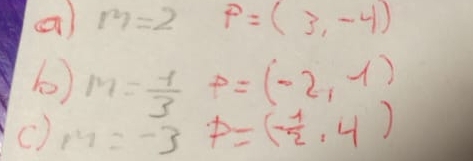 a) m=2 P=(3,-4)
b) m=1/3 P=(-2,1)
c) m=-3 P=(-1/2,4)